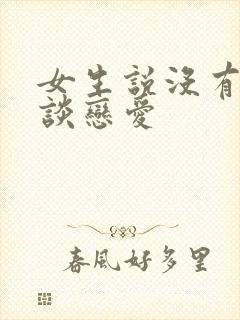 女生說沒有
談戀愛
春風好多里